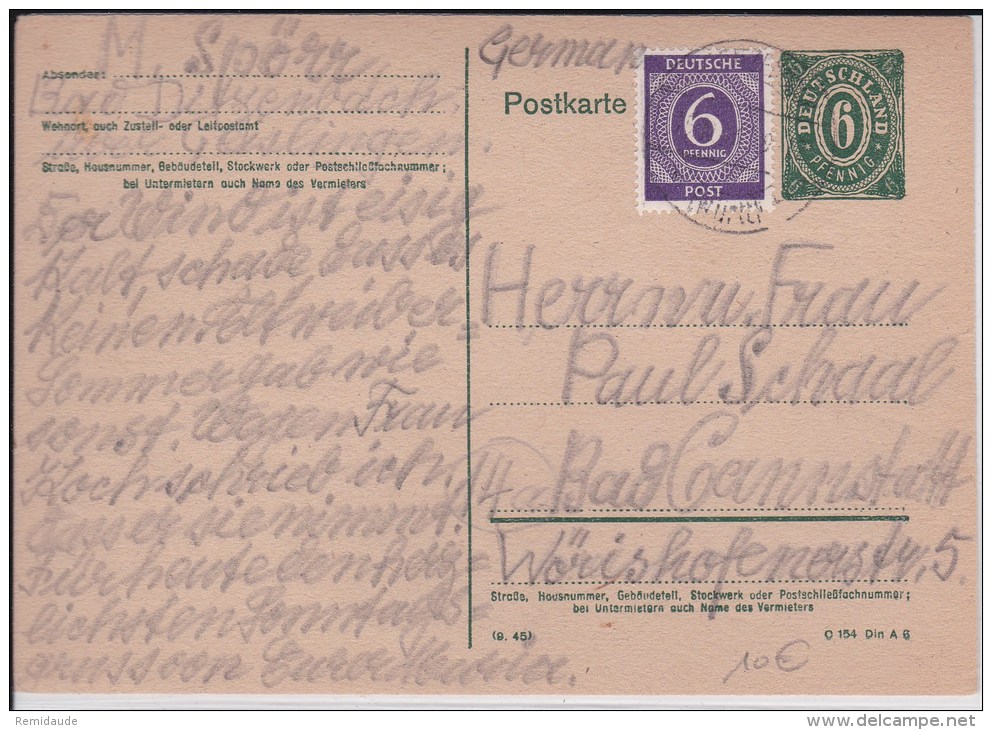 M. Spörr
Absender:
Bad
Wohnort, auch Zustell- oder Leitpostamt
Straße, Hausnummer, Gebäudeteil, Stockwerk oder Postschließfachnummer;
bei Untermietern auch Name des Vermieters
Der Wind ist eisig
kalt, schade dass es
keinen Altweiber-
Sommer gab wie
sonst. Wegen Frau
Koch schrieb ich
dass sie nimmt.
Für heute den herz-
lichsten Sonntags-
gruss von Eurer
German
Postkarte
DEUTSCHE
6
PFENNIG
POST
DEUTSCHLAND
6
PFENNIG
6 6
6 6
Herrn u. Frau
Paul Schaal
Bad Cannstatt
Wörishofenerstr. 5.
Straße, Hausnummer, Gebäudeteil, Stockwerk oder Postschließfachnummer;
bei Untermietern auch Name des Vermieters
(9. 45)
C 154 Din A 6
10€
Remidaude
www.delcampe.net